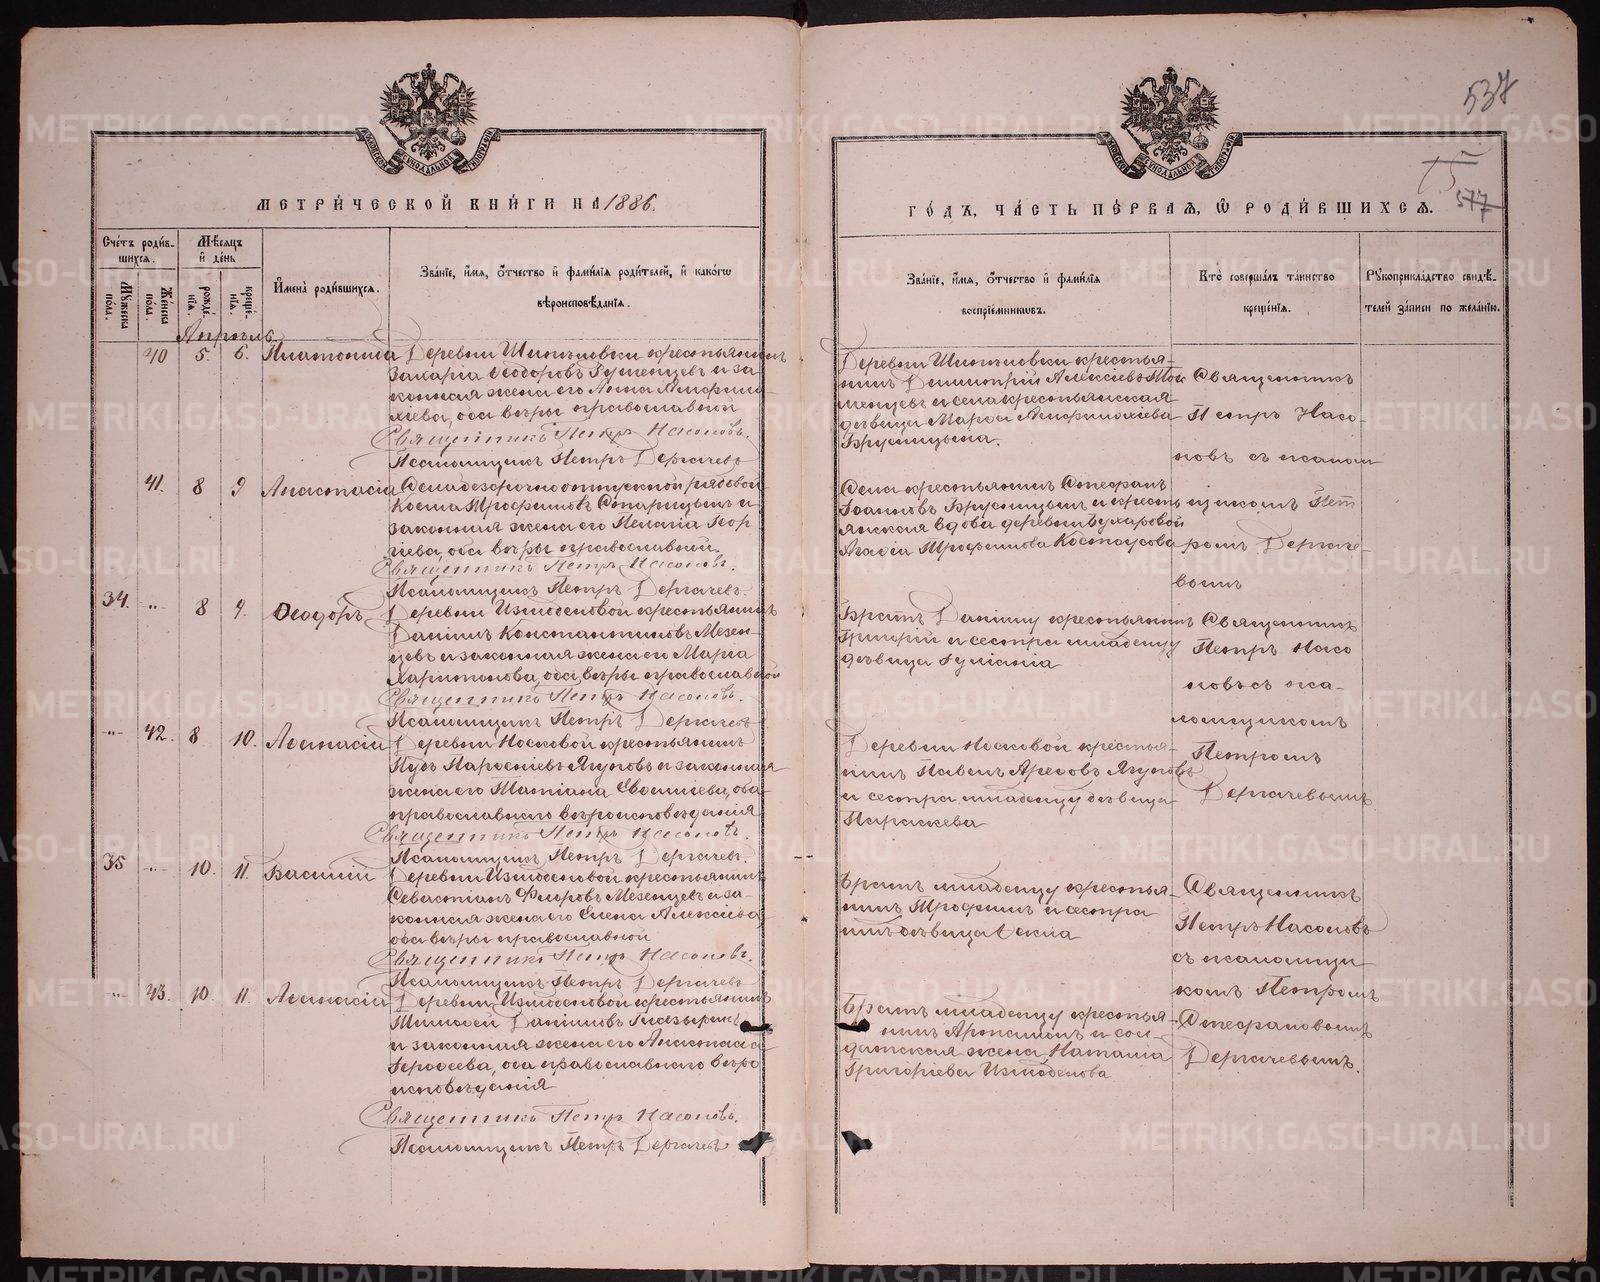 537
15
577
МЕТРИ́ЧЕСКОЙ КНИ́ГИ НА 1886.
ГО́ДЪ, ЧА́СТЬ ПЕ́РВАѦ, Ѡ҆ РОДИ́ВШИХСѦ.
Сче́тъ роди́в-
шихсѧ.
Мꙋ́жеска по́ла.
Же́нска по́ла.
Мѣ́сѧцъ
и҆ де́нь
рожде́-нїѧ.
креще́-нїѧ.
И҆мена̀ роди́вшихсѧ.
Зва́нїе, и҆́мѧ, ѻ҆́тчество и҆ фами́лїѧ роди́телей, и҆ како́гѡ
вѣроисповѣ́данїѧ.
Зва́нїе, и҆́мѧ, ѻ҆́тчество и҆ фами́лїѧ
воспрїе́мникѡвъ.
Кто̀ соверша́лъ та́инство
креще́нїѧ.
Рꙋкоприкла́дство свидѣ́-
телей за́писи по жела́нїю.
Апрѣль
40 5. 6. Платонида
Деревни Шипичовки крестьянинъ
Захарія Ѳеодоровъ и за-
конная жена его Анна
оба вѣры православной
Священникъ Петръ Насоновъ.
Псаломщикъ Петръ Дергачевъ
Деревни Шипичовки крестья-
нинъ Димитрій Алексіевъ
и села крестьянская
дѣвица Марѳа
Брусницына.
Священникъ
Петръ Насо-
новъ съ псалом
щикомъ Пет
ромъ Дергаче-
вымъ
41. 8 9 Анастасія
Села безсрочноотпускной рядовой
Косма Трофимовъ Старицынъ и
законная жена его Пелагія Геор
гіева, оба вѣры православной.
Священникъ Петръ Насоновъ.
Псаломщикъ Петръ Дергачевъ.
Села крестьянинъ Стефанъ
Іоанновъ Брусницынъ и кресть
янская вдова деревни Бухаровой
Агаѳія Трофимова Костоусова
34. -"- 8 9. Ѳеодоръ
Деревни Измоденовой крестьянинъ
Даніилъ Константиновъ Мезен-
цевъ и законная жена его Марія
Харитонова, оба вѣры православной
Священникъ Петръ Насоновъ.
Псаломщикъ Петръ Дергачевъ
Братъ Даніилу крестьянинъ
Григорій и сестра младенцу
дѣвица Іуліанія
Священникъ
Петръ Насо
новъ съ пса-
ломщикомъ
Петромъ
Дергачевымъ
-"- 42. 8 10. Аѳанасій
Деревни Носковой крестьянинъ
Ягуповъ и законная
жена его Татіана оба
православнаго вѣроисповѣданія
Священникъ Петръ Насоновъ.
Псаломщикъ Петръ Дергачевъ.
Деревни Носковой крестья-
нинъ Павелъ Ягуповъ
и сестра младенцу дѣвица
Параскева
35 -"- 10. 11. Василій
Деревни Измоденовой крестьянинъ
Севастіанъ Флоровъ Мезенцевъ и за-
конная жена его Елена Алексіева,
оба вѣры православной
Священникъ Петръ Насоновъ.
Псаломщикъ Петръ Дергачевъ
Братъ младенцу крестья-
нинъ Трофимъ и сестра
дѣвица Ѳекла
Священникъ
Петръ Насоновъ
съ псаломщи-
комъ Петромъ
Стефановымъ
Дергачевымъ.
-"- 43. 10. 11. Аѳанасій
Деревни Измоденовой крестьянинъ
Тимоѳей Даніиловъ
и законная жена его Анастасія
оба православнаго вѣро
исповѣданія
Священникъ Петръ Насоновъ.
Псаломщикъ Петръ Дергачевъ
Братъ младенцу крестья-
нинъ Артамонъ и сол-
датская жена Наталія
Григоріева Измоденова
METRIKI.GASO-URAL.RU